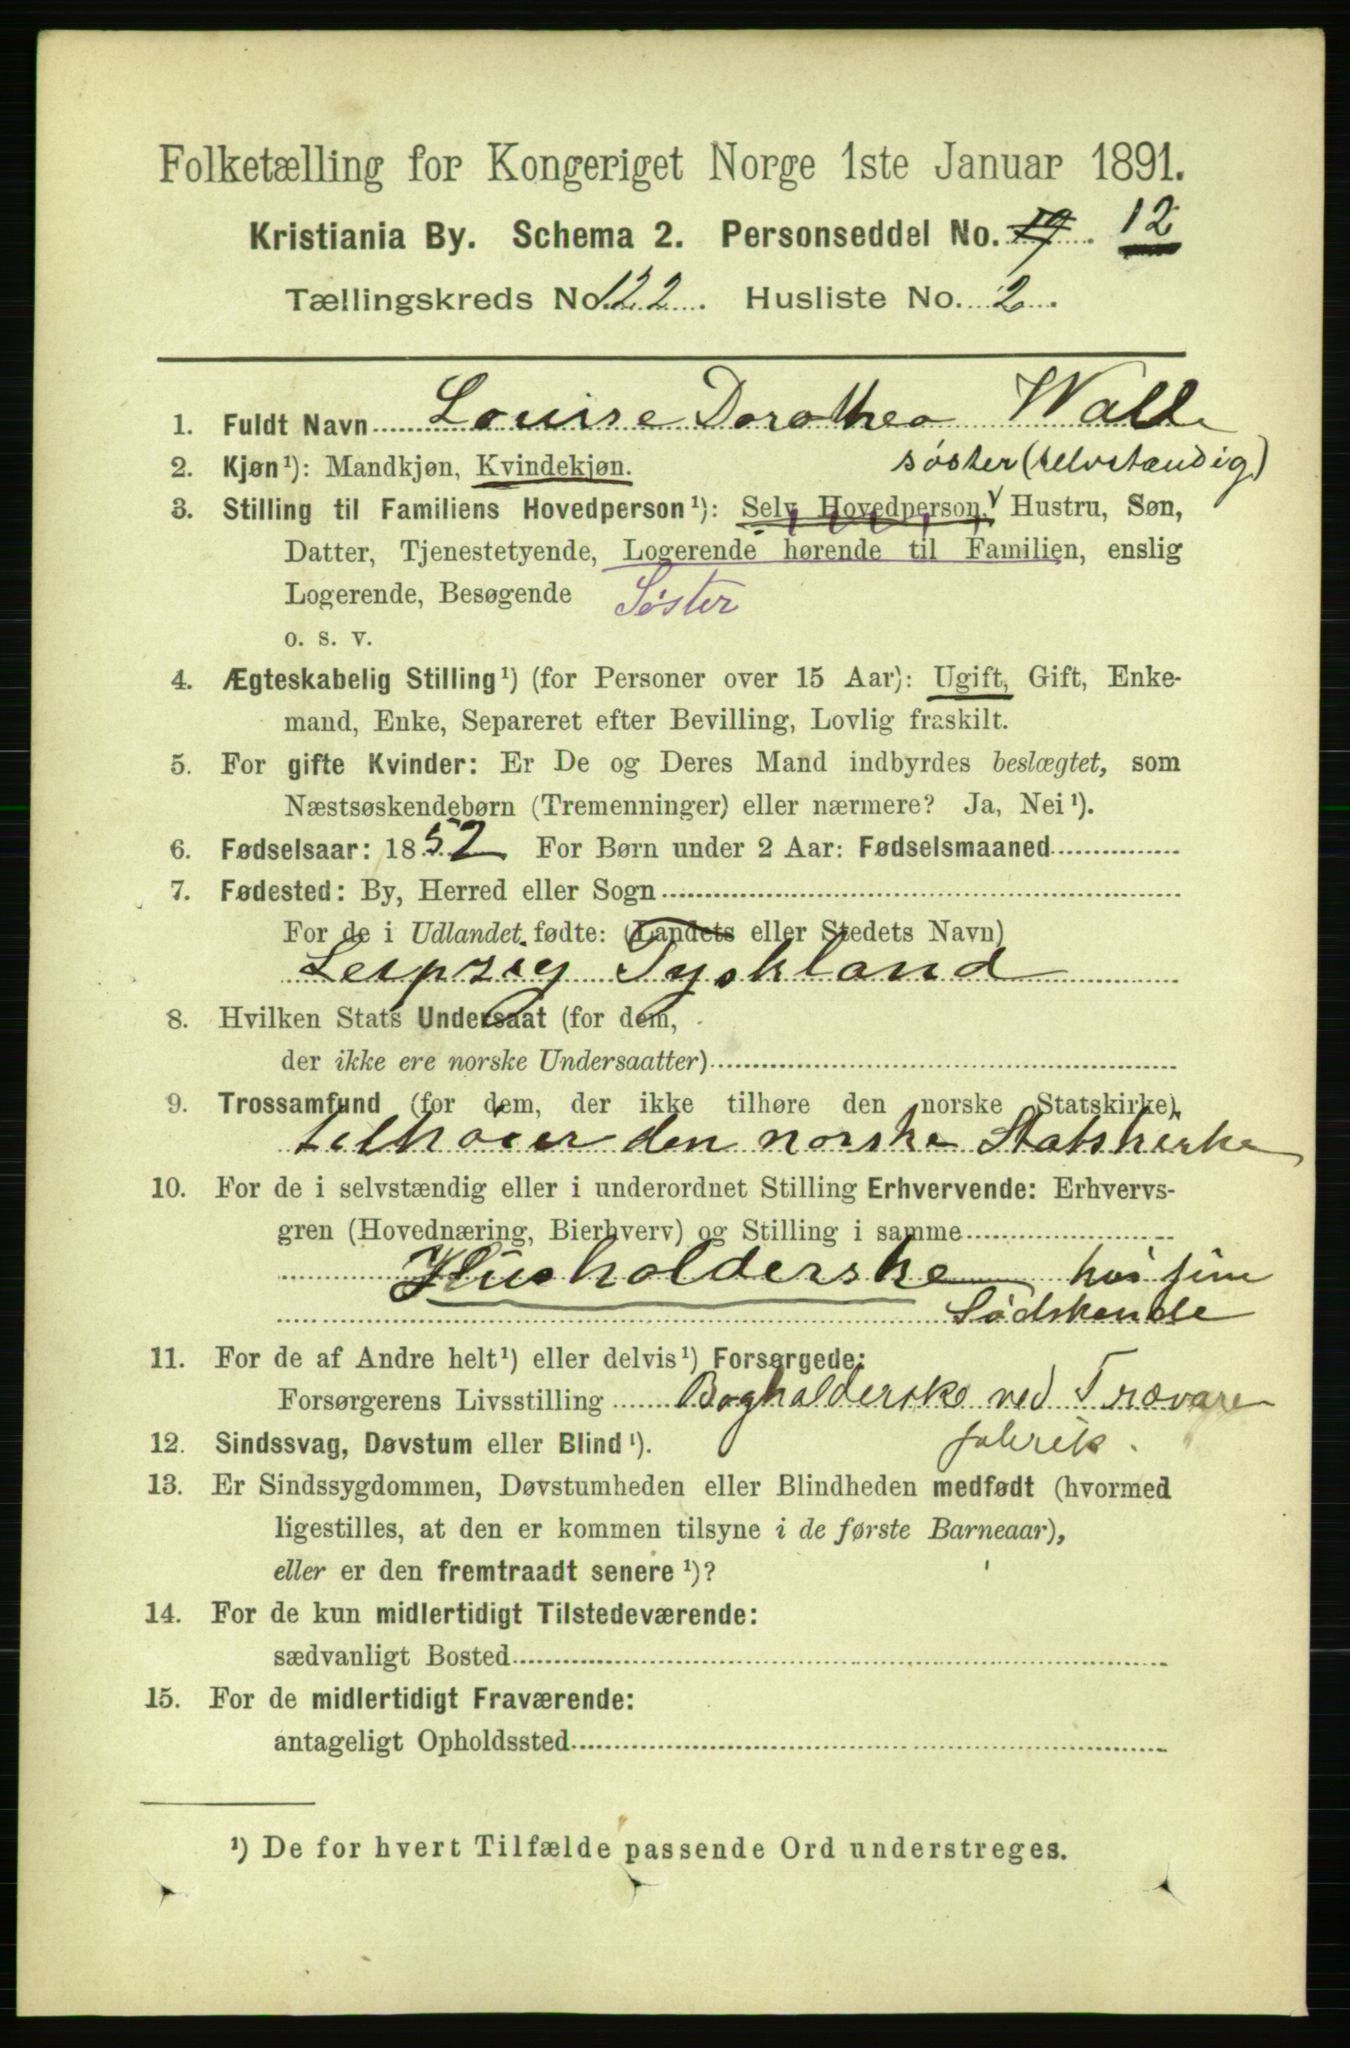 Folketælling for Kongeriget Norge 1ste Januar 1891.
Kristiania By. Schema 2. Personseddel No. 19. 12
Tællingskreds No. 122. Husliste No. 2.
1. Fuldt Navn Louise Dorothea Walle
2. Kjøn¹): Mandkjøn, Kvindekjøn. søster (selvstændig)
3. Stilling til Familiens Hovedperson¹): Selv Hovedperson, Hustru, Søn,
Datter, Tjenestetyende, Logerende hørende til Familien, enslig
Logerende, Besøgende Søster
o. s. v.
4. Ægteskabelig Stilling¹) (for Personer over 15 Aar): Ugift, Gift, Enke-
mand, Enke, Separeret efter Bevilling, Lovlig fraskilt.
5. For gifte Kvinder: Er De og Deres Mand indbyrdes beslægtet, som
Næstsøskendebørn (Tremenninger) eller nærmere? Ja, Nei¹).
6. Fødselsaar: 1852 For Børn under 2 Aar: Fødselsmaaned
7. Fødested: By, Herred eller Sogn
For de i Udlandet fødte: (Landets eller Stedets Navn)
Leipzig Tyskland
8. Hvilken Stats Undersaat (for dem,
der ikke ere norske Undersaatter)
9. Trossamfund (for dem, der ikke tilhøre den norske Statskirke)
tilhøier den norske Statskirke
10. For de i selvstændig eller i underordnet Stilling Erhvervende: Erhvervs-
gren (Hovednæring, Bierhverv) og Stilling i samme
Husholderske hos sine
Södskende
11. For de af Andre helt¹) eller delvis¹) Forsørgede:
Forsørgerens Livsstilling Bogholderske ved Trævare
fabrik.
12. Sindssvag, Døvstum eller Blind¹).
13. Er Sindssygdommen, Døvstumheden eller Blindheden medfødt (hvormed
ligestilles, at den er kommen tilsyne i de første Barneaar),
eller er den fremtraadt senere¹)?
14. For de kun midlertidigt Tilstedeværende:
sædvanligt Bosted
15. For de midlertidigt Fraværende:
antageligt Opholdssted
¹) De for hvert Tilfælde passende Ord understreges.